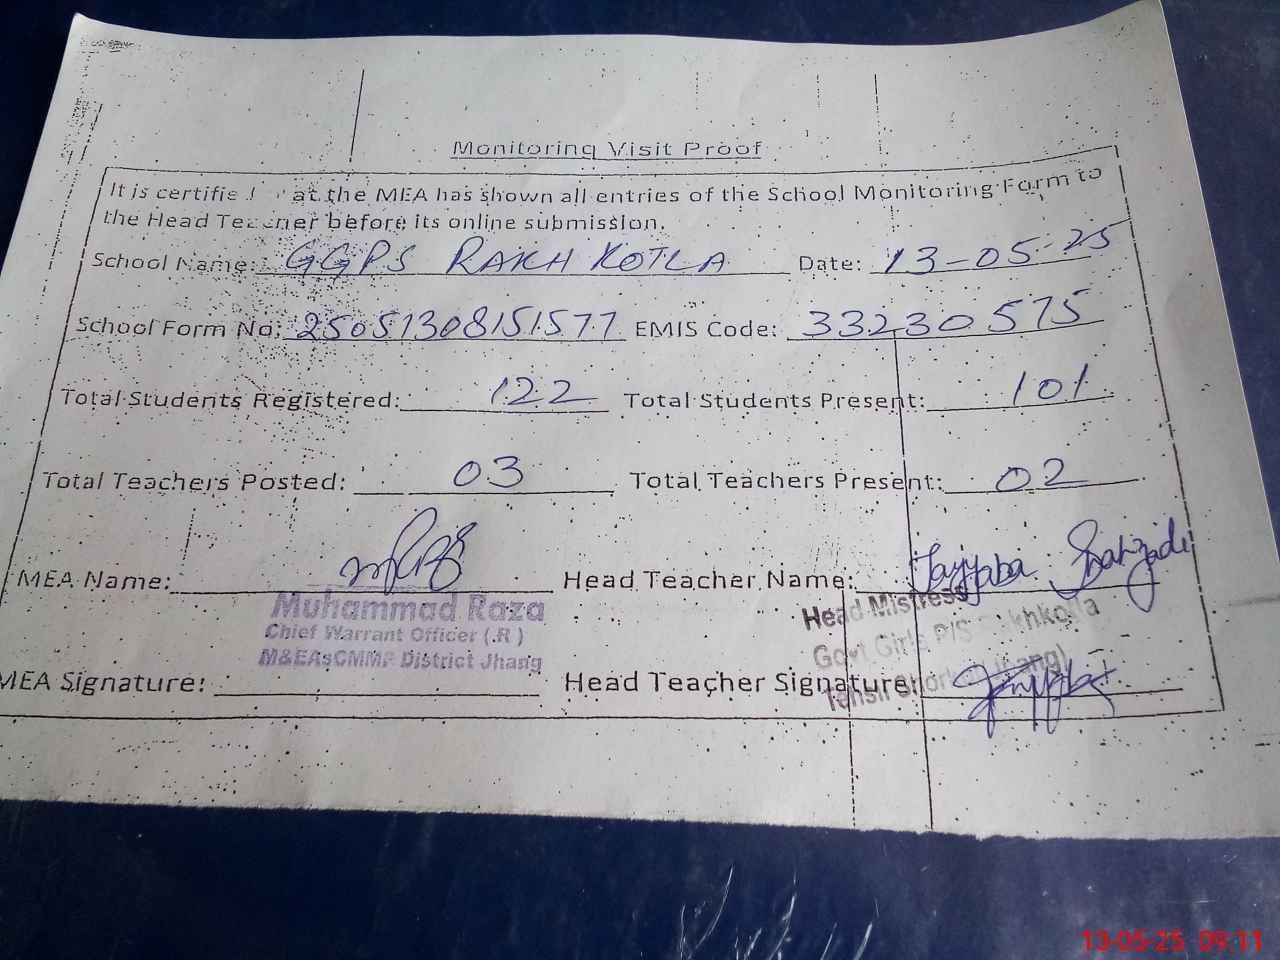 Monitoring Visit Proof
It is certified at the MEA has shown all entries of the School Monitoring Form to
the Head Teacher before its online submission.
School Name: GGPS RAKH KOTLA Date: 13-05-25
School Form No: 25051308151577 EMIS Code: 33230575
Total Students Registered: 122 Total Students Present: 101
Total Teachers Posted: 03 Total Teachers Present: 02
MEA Name: Head Teacher Name: Tayyaba Shahzadi
Muhammad Raza
Chief Warrant Officer (R)
M&EAsCMMF District Jhang
Head Mistress
Govt Girls P/S Rakhkotla
MEA Signature: Head Teacher Signature:
13-05-25 09:11